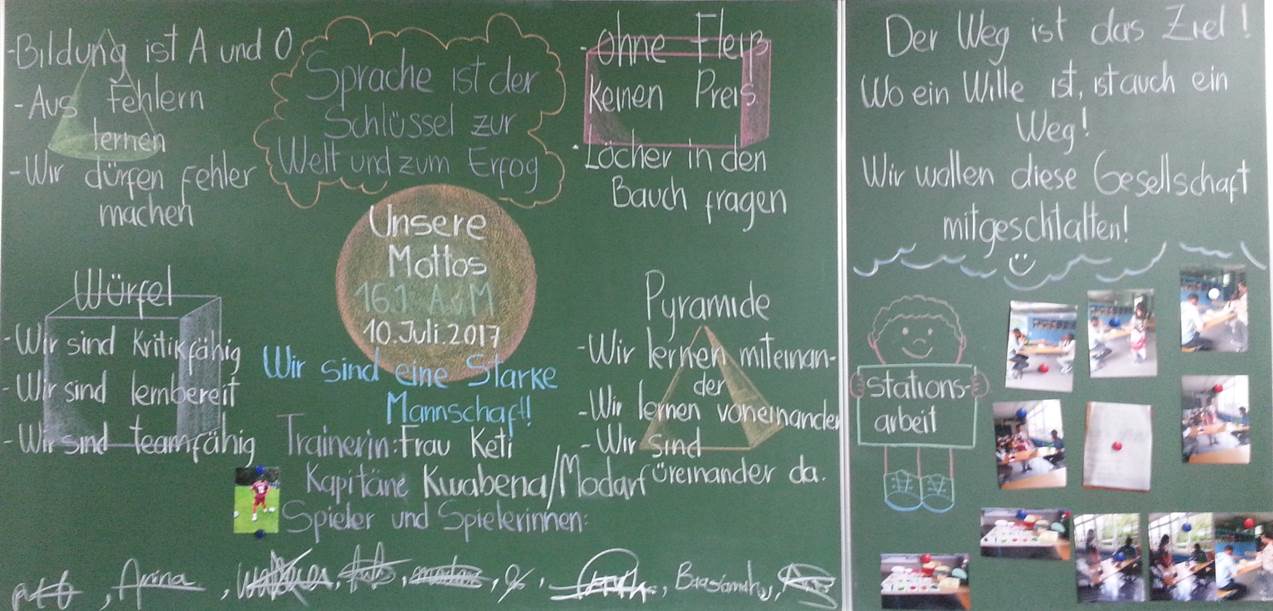 -Bildung ist A und O
-Aus Fehlern
lernen
-Wir dürfen Fehler
machen
Sprache ist der
Schlüssel zur
Welt und zum Erfog
-Ohne Fleiß
Keinen Preis.
Löcher in den
Bauch fragen
Unsere
Mottos
10.Juli.2017
Wir sind eine Starke
Mannschaft!
Trainerin:Frau Keti
Kapitäne Kwabena/Modar
Spieler und Spielerinnen:
Würfel
-Wir sind Kritikfähig
-Wir sind lernbereit
-Wir sind teamfähig
Pyramide
-Wir lernen miteinan-
der
-Wir lernen voneinander
-Wir sind
füreinander da.
Amina
Der Weg ist das Ziel!
Wo ein Wille ist, ist auch ein
Weg!
Wir wollen diese Gesellschaft
mitgeschtalten!
Stations-
arbeit